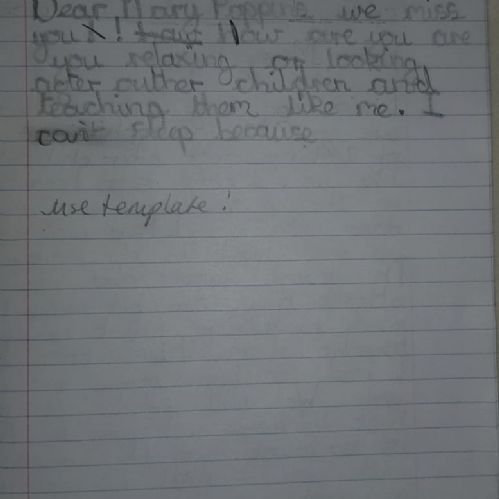 Dear Mary Poppins we miss
you! How are you are
you relaxing or looking
acter outher children and
teaching them like me. I
can't sleep because
use template!